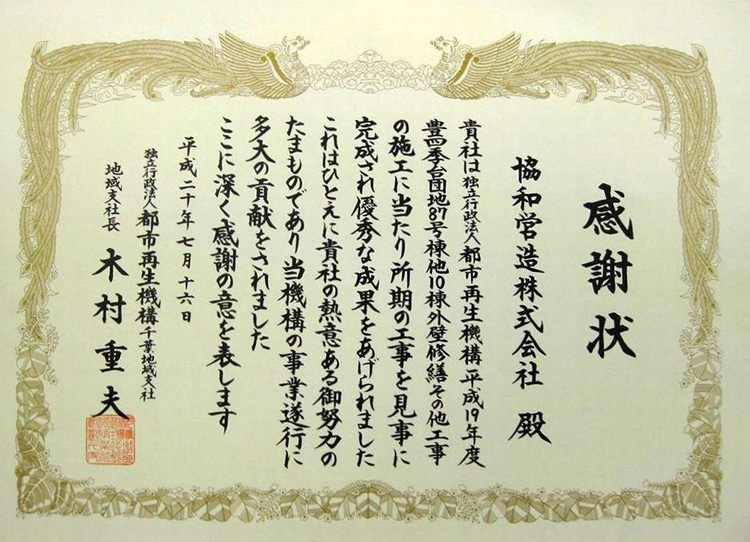 感謝状
協和営造株式会社 殿
貴社は独立行政法人都市再生機構平成19年度
豊四季台団地87号棟他10棟外壁修繕その他工事
の施工に当たり所期の工事を見事に
完成され優秀な成果をあげられました
これはひとえに貴社の熱意ある御努力の
たまものであり当機構の事業遂行に
多大の貢献をされました
ここに深く感謝の意を表します
平成二十年七月十六日
独立行政法人都市再生機構千葉地域支社
地域支社長 木村重夫